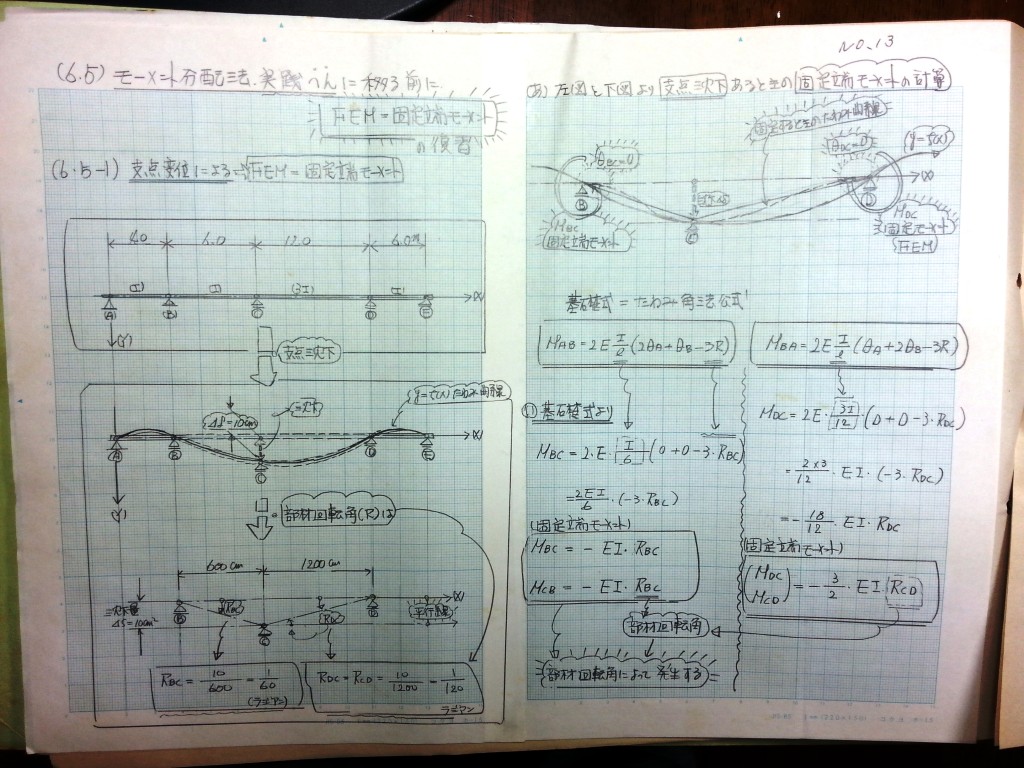 NO.13
(6.5) モーメント分配法.実践へんに移る前に
FEM=固定端モーメント
の復習
(6.5-1) 支点変位による⇒FEM=固定端モーメント
4.0 6.0 12.0 6.0m
(I) (I) (3I) (I)
(A) (B) (C) (D) (E) (X)
(Y)
支点沈下
y=f(x)たわみ曲線
沈下
ΔS=10cm
(A) (B) (C) (D) (E) (X)
(Y)
部材回転角(R)は
600cm 1200cm
沈下量
ΔS=10cm
RBC RDC
平行線
(B) (C) (D) (X)
RBC = 10/600 = 1/60
(ラジアン)
RDC = RCD = 10/1200 = 1/120
ラジアン
(あ) 左図と下図より支点沈下あるときの固定端モーメントの計算
固定するときのたわみ曲線
θBC=0
θDC=0
(y=f(x))
(B) (C) (D) (X)
MBC
固定端モーメント
MDC
固定モーメント
FEM
基礎式=たわみ角法公式
MAB=2E I/l (2θA+θB-3R)
MBA=2E I/l (θA+2θB-3R)
基礎式より
MBC = 2・E・I/6 (0+0-3・RBC)
= 2EI/6 ・(-3・RBC)
(固定端モーメント)
MBC = - EI・RBC
MCB = - EI・RBC
部材回転角
部材回転角によって発生する
MDC = 2E・3I/12・(0+0-3・RDC)
= 2×3/12・EI・(-3・RDC)
= - 18/12・EI・RDC
(固定端モーメント)
(MDC
MCD) = - 3/2・EI RCD